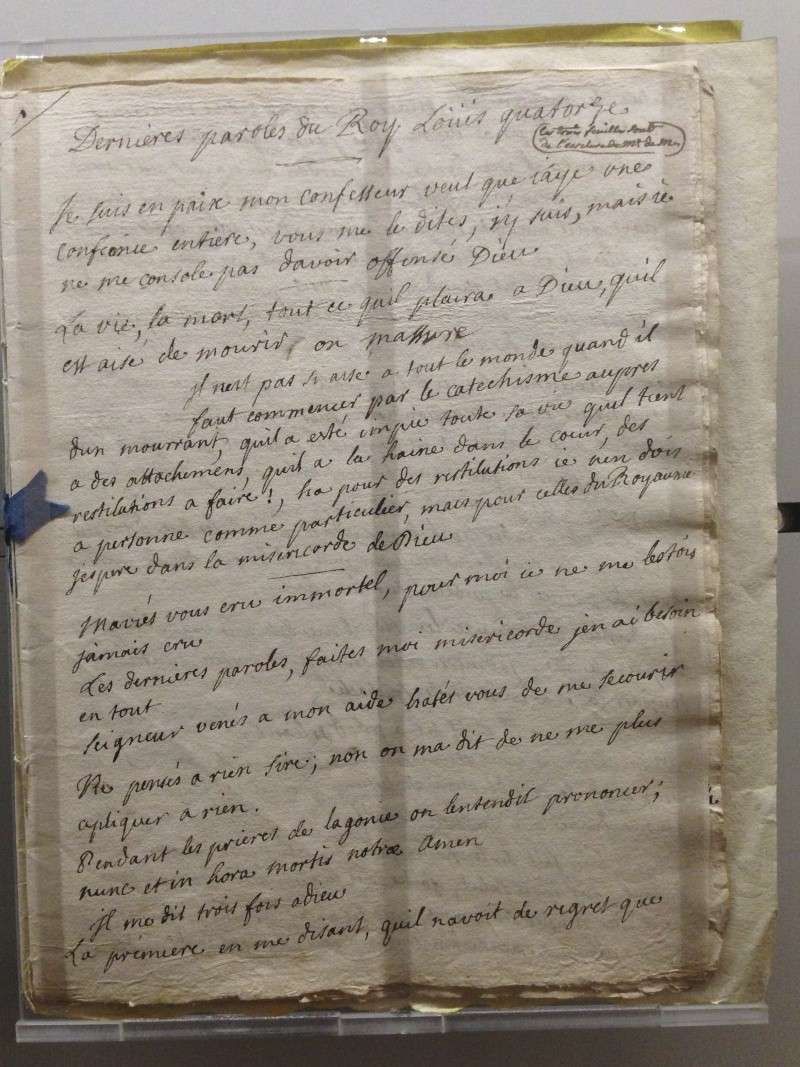 Dernieres paroles du Roy Loüis quatorze
ces trois feuilles sont
de l'ecriture de Mᵉ de
Je suis en paix mon confesseur veut que j'aye une
confience entiere, vous me le dites, j'y suis, mais ie
ne me console pas davoir offensé Dieu
La vie, la mort, tout ce quil plaira a Dieu, quil
est aisé de mourir, on massure
Jl nest pas si aise a tout le monde quand il
faut commencer par le catechisme aupres
dun mourrant, quil a esté impie toute sa vie quil tient
a des attachemens, quil a la haine dans le coeur, des
restitutions a faire!, ha pour des restitutions ie nen dois
a personne comme particulier, mais pour celles du Royaume
jespere dans la misericorde de Dieu
Maviés vous cru immortel, pour moi ie ne me lestois
jamais cru
Les dernieres paroles, faites moi misericorde jen ai besoin
en tout
seigneur venés a mon aide hatés vous de me secourir
Ne pensés a rien sire; non on ma dit de ne me plus
apliquer a rien.
Pendant les prieres de lagonie on lentendit prononcer;
nunc et in hora mortis notræ Amen
Jl me dit trois fois adieu
La premiere en me disant, quil navoit de regret que